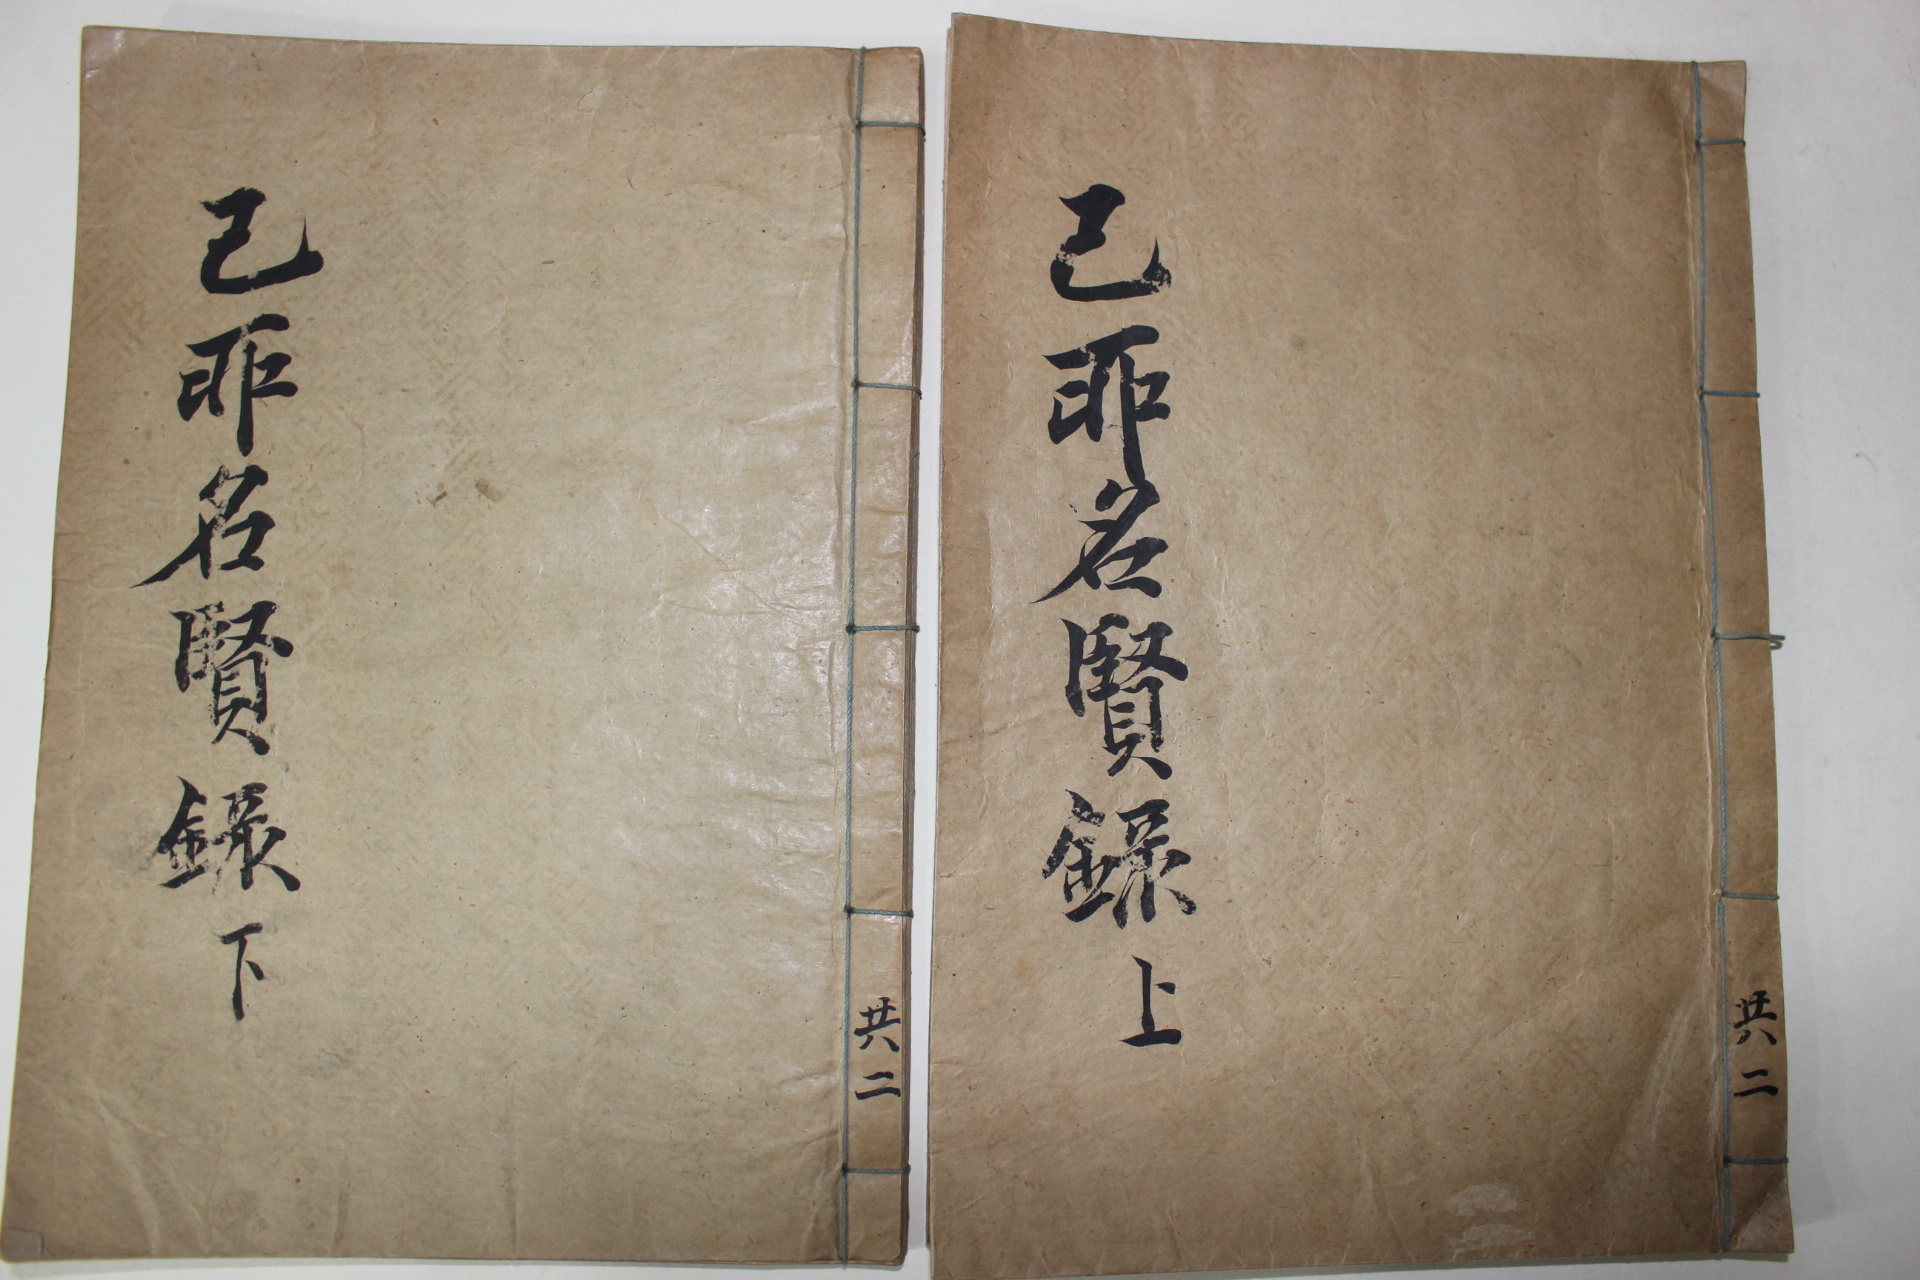 己卯名賢錄上
共二
己卯名賢錄下
共二